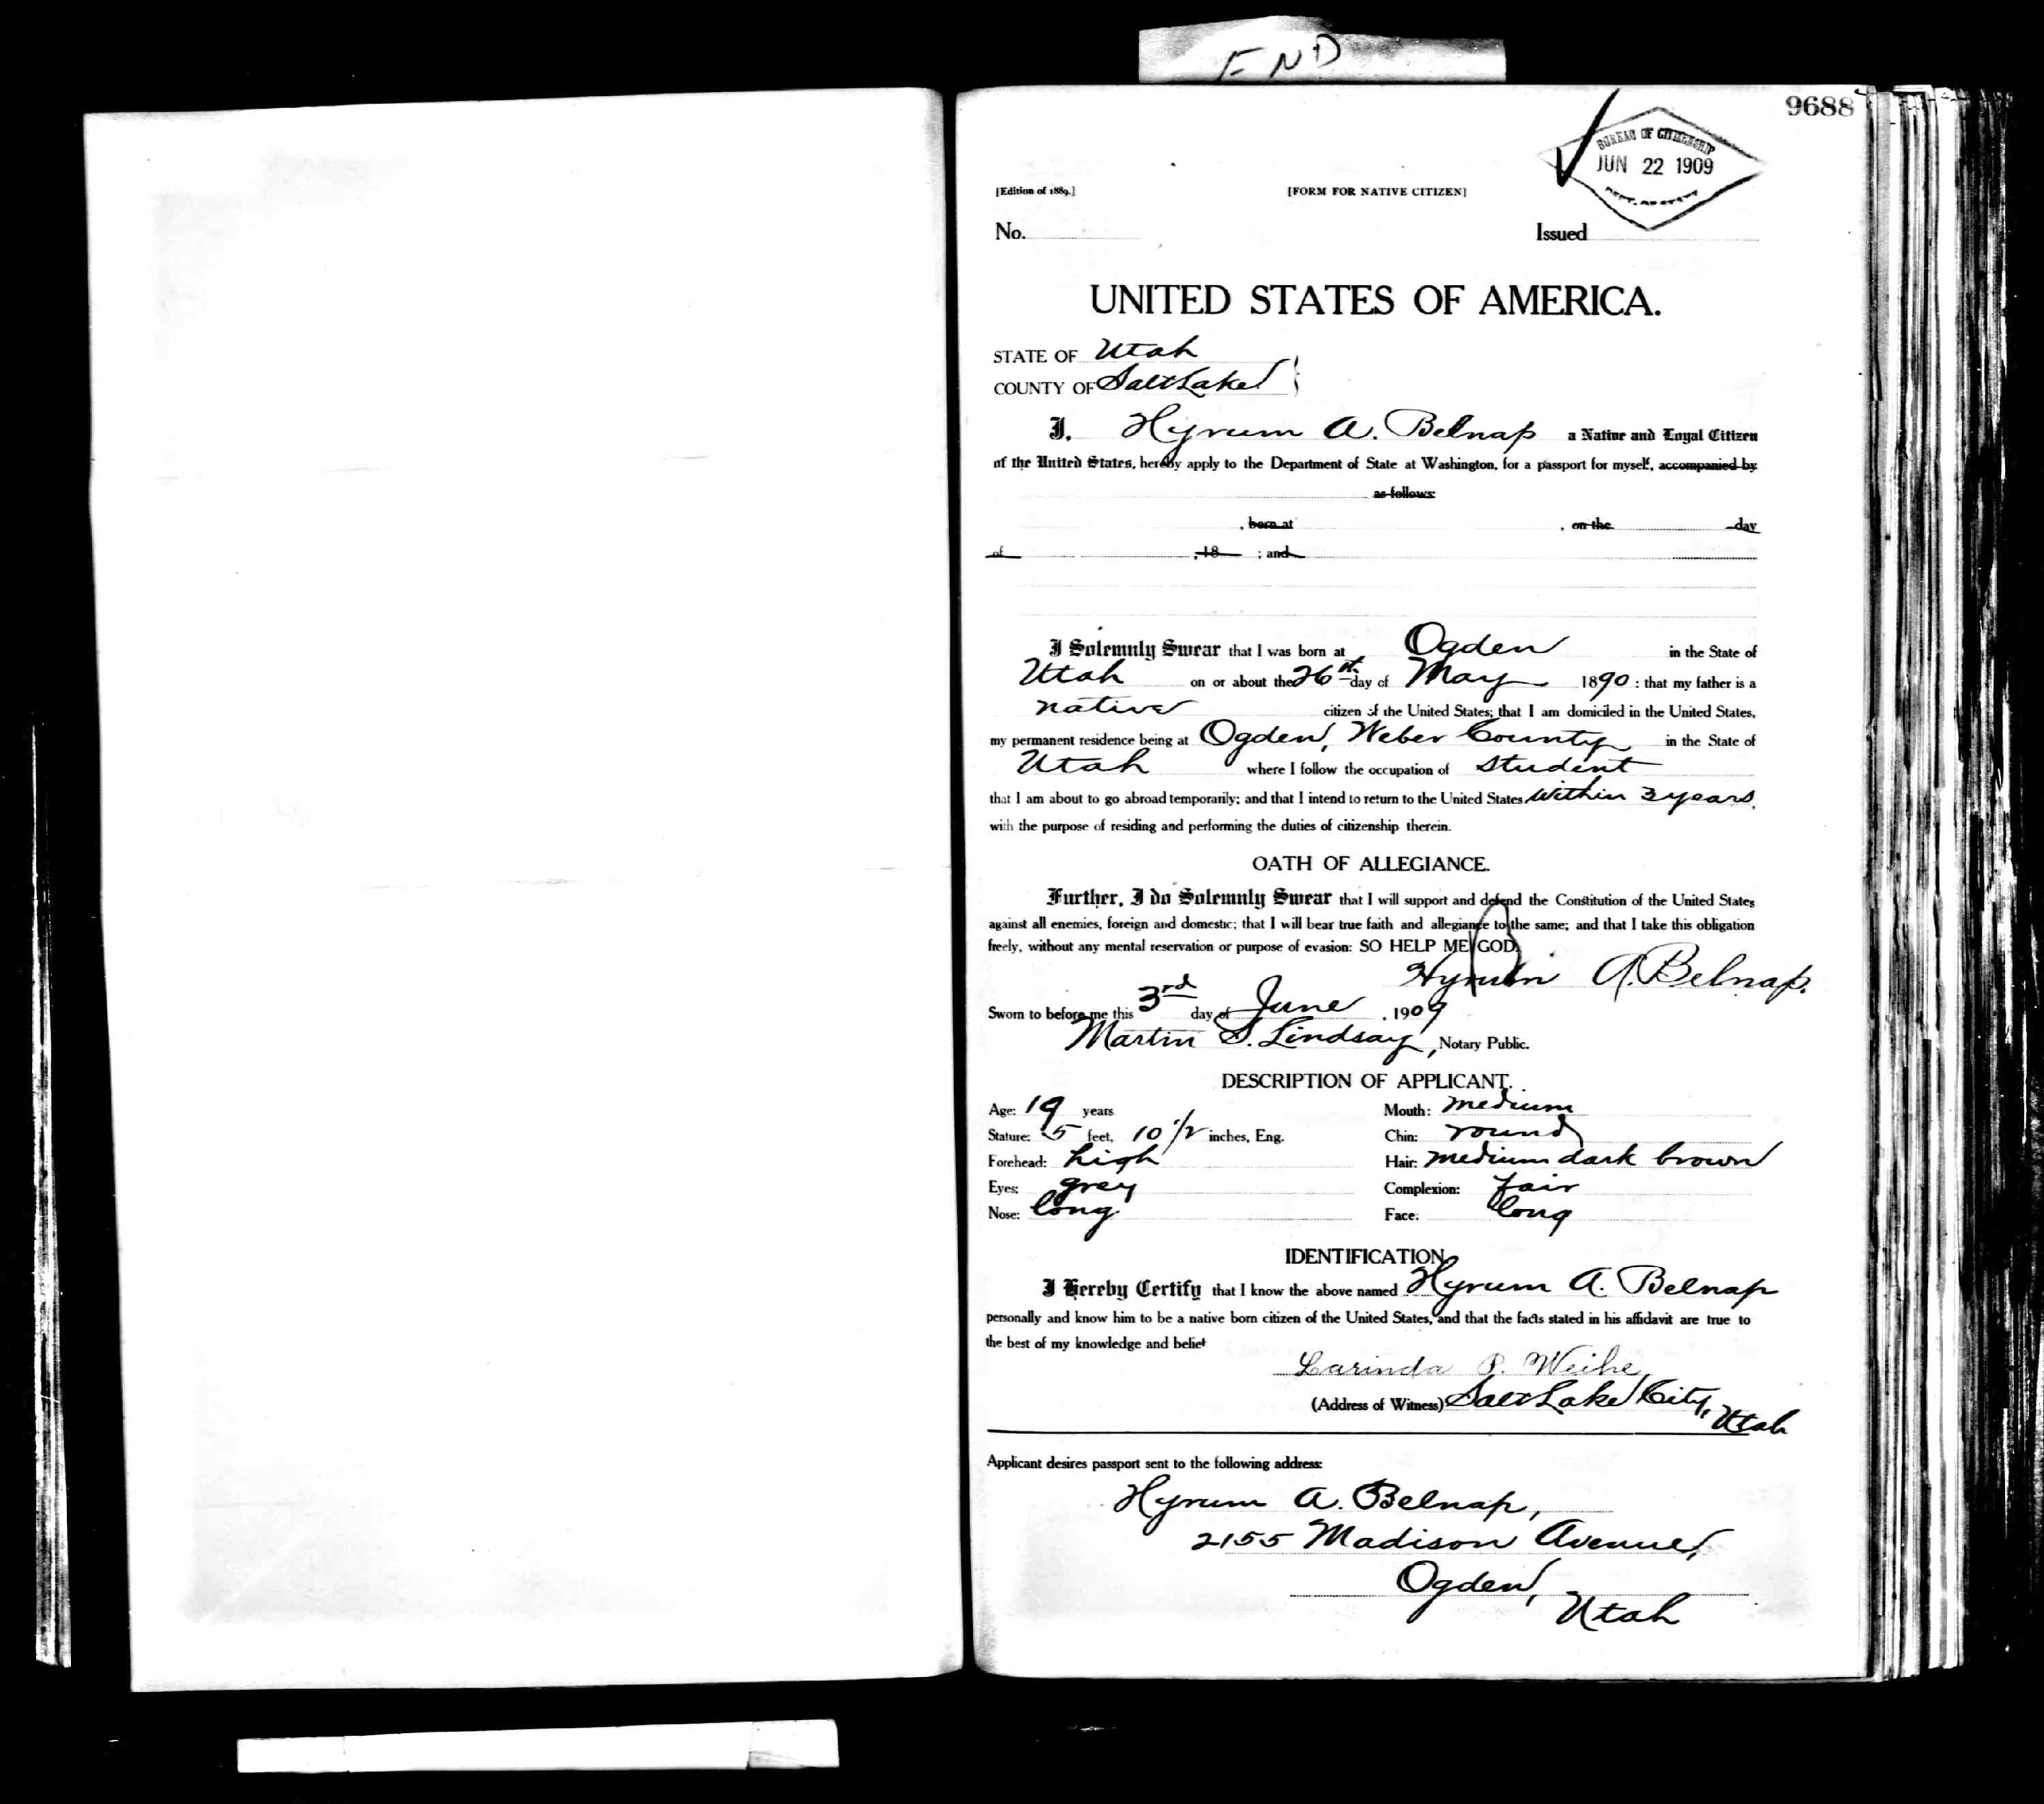 END
9688
BUREAU OF CITIZENSHIP
JUN 22 1909
DEPT. OF STATE
[Edition of 1889.] [FORM FOR NATIVE CITIZEN]
No. Issued
UNITED STATES OF AMERICA.
STATE OF Utah
COUNTY OF Salt Lake
I, Hyrum A. Belnap a Native and Loyal Citizen
of the United States, hereby apply to the Department of State at Washington, for a passport for myself, accompanied by
as follows:
, born at , on the day
of , 18 ; and
I Solemnly Swear that I was born at Ogden in the State of
Utah on or about the 26st day of May 1890 : that my father is a
native citizen of the United States; that I am domiciled in the United States,
my permanent residence being at Ogden, Weber County in the State of
Utah where I follow the occupation of student
that I am about to go abroad temporarily; and that I intend to return to the United States Within 3 years,
with the purpose of residing and performing the duties of citizenship therein.
OATH OF ALLEGIANCE.
Further, I do Solemnly Swear that I will support and defend the Constitution of the United States
against all enemies, foreign and domestic; that I will bear true faith and allegiance to the same; and that I take this obligation
freely, without any mental reservation or purpose of evasion: SO HELP ME GOD.
Hyrum A. Belnap.
Sworn to before me this 3rd day of June , 1909
Martin S. Lindsay, Notary Public.
DESCRIPTION OF APPLICANT.
Age: 19 years Mouth: medium
Stature: 5 feet, 10 1/2 inches, Eng. Chin: round
Forehead: high Hair: medium dark brown
Eyes: grey Complexion: fair
Nose: long Face: long
IDENTIFICATION
I Hereby Certify that I know the above named Hyrum A. Belnap
personally and know him to be a native born citizen of the United States, and that the facts stated in his affidavit are true to
the best of my knowledge and belief
Larinda P. Weihe
(Address of Witness) Salt Lake City, Utah
Applicant desires passport sent to the following address:
Hyrum A. Belnap,
2155 Madison Avenue,
Ogden,
Utah